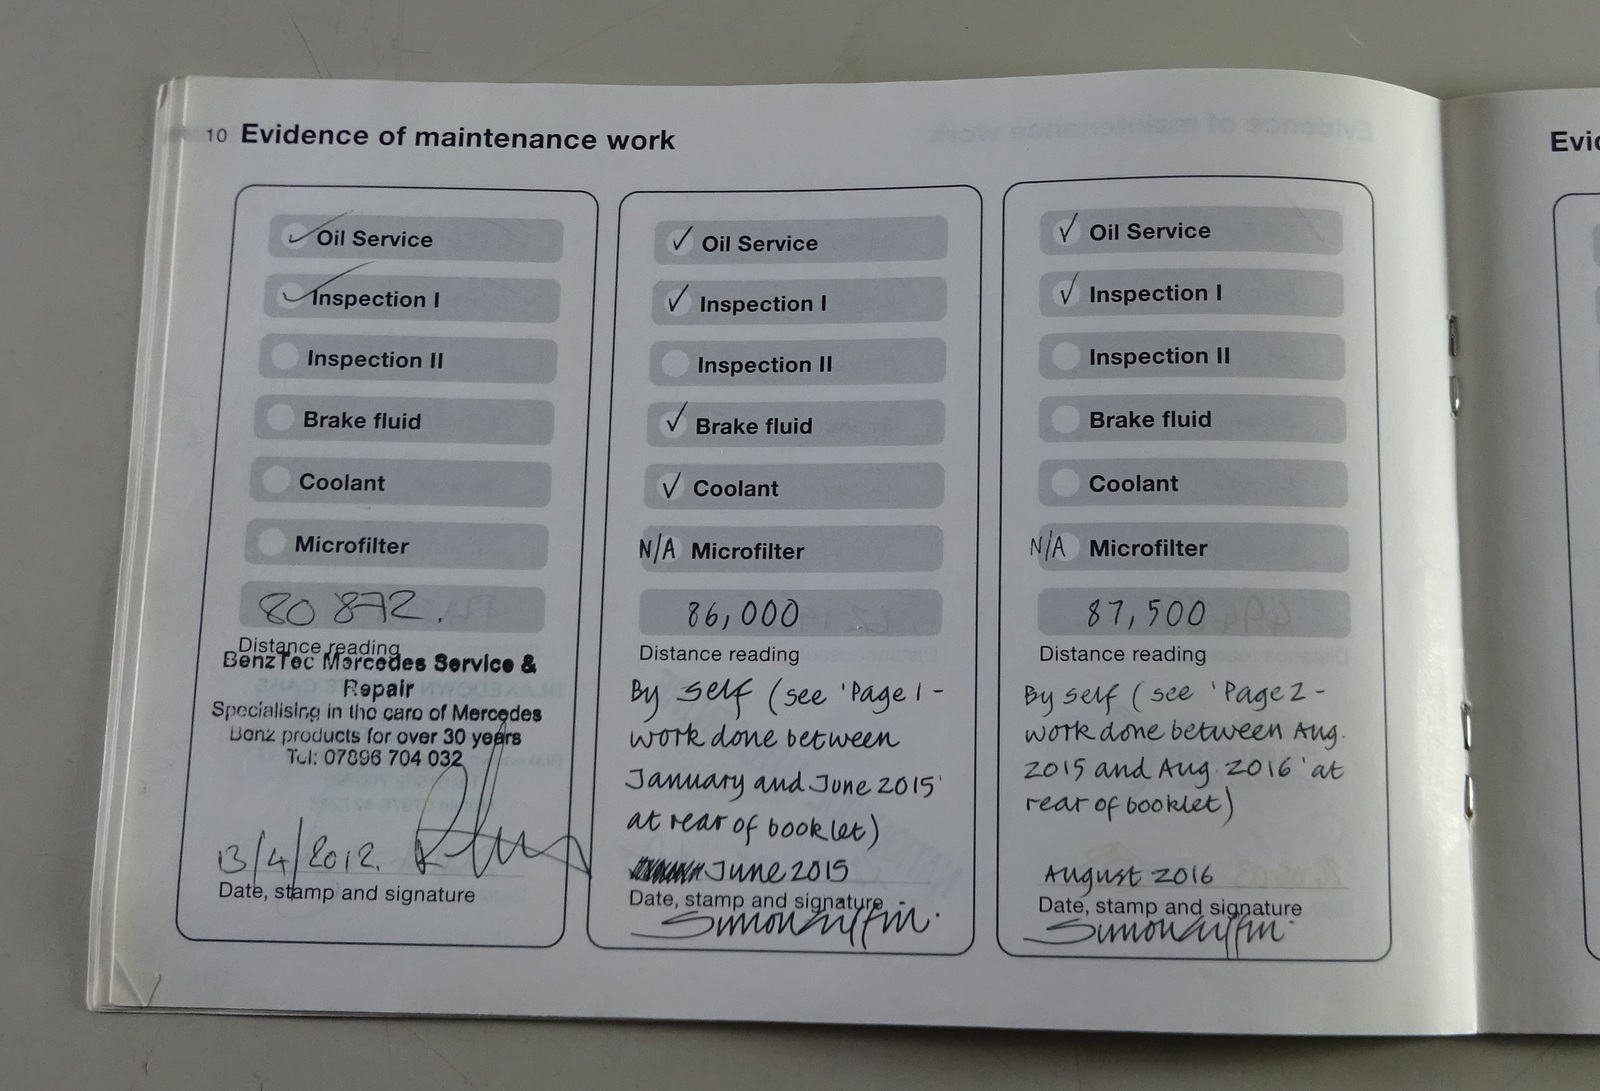 10 Evidence of maintenance work
Oil Service
Inspection I
Inspection II
Brake fluid
Coolant
Microfilter
80 872.
Distance reading
BenzTec Mercedes Service &
Repair
Specialising in the care of Mercedes
Benz products for over 30 years
Tel: 07896 704 032
13/4/2012.
Date, stamp and signature
Oil Service
Inspection I
Inspection II
Brake fluid
Coolant
N/A Microfilter
86,000
Distance reading
By self (see 'Page 1 -
work done between
January and June 2015'
at rear of booklet)
June 2015
Date, stamp and signature
Simon Griffin.
Oil Service
Inspection I
Inspection II
Brake fluid
Coolant
N/A Microfilter
87,500
Distance reading
By self (see 'Page 2 -
work done between Aug.
2015 and Aug. 2016' at
rear of booklet)
August 2016
Date, stamp and signature
Simon Griffin.